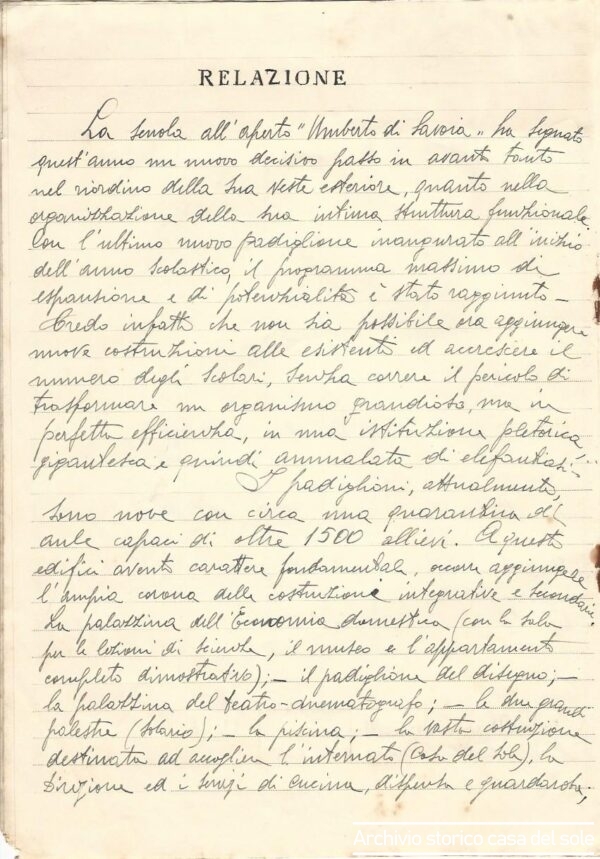 RELAZIONE
La scuola all'aperto "Umberto di Savoia" ha segnato
quest'anno un nuovo decisivo passo in avanti tanto
nel riordino della sua veste esteriore, quanto nella
organizzazione della sua intima struttura funzionale.
Con l'ultimo nuovo padiglione inaugurato all'inizio
dell'anno scolastico, il programma massimo di
espansione e di potenzialità è stato raggiunto -
Credo infatti che non sia possibile ora aggiungere
nuove costruzioni alle esistenti ed accrescere il
numero degli scolari, senza correre il pericolo di
trasformare un organismo grandioso, ma in
perfetta efficienza, in una istituzione pletorica,
gigantesca e quindi ammalata di elefantiasi..
I padiglioni, attualmente,
sono nove con circa una quarantina di
aule capaci di oltre 1500 allievi. A questi
edifici aventi carattere fondamentale, occorre aggiungere
l'ampia corona delle costruzioni integrative e secondarie.
La palazzina dell'Economia domestica (con la sala
per le lezioni di scienze, il museo e l'appartamento
completo dimostrativo); - il padiglione del disegno; -
la palazzina del teatro-cinematografo; - le due grandi
palestre (solario); - la piscina; - la vasta costruzione
destinata ad accogliere l'internato (Casa del Sole), la
Direzione ed i servizi di cucina, dispensa e guardaroba;
Archivio storico casa del sole